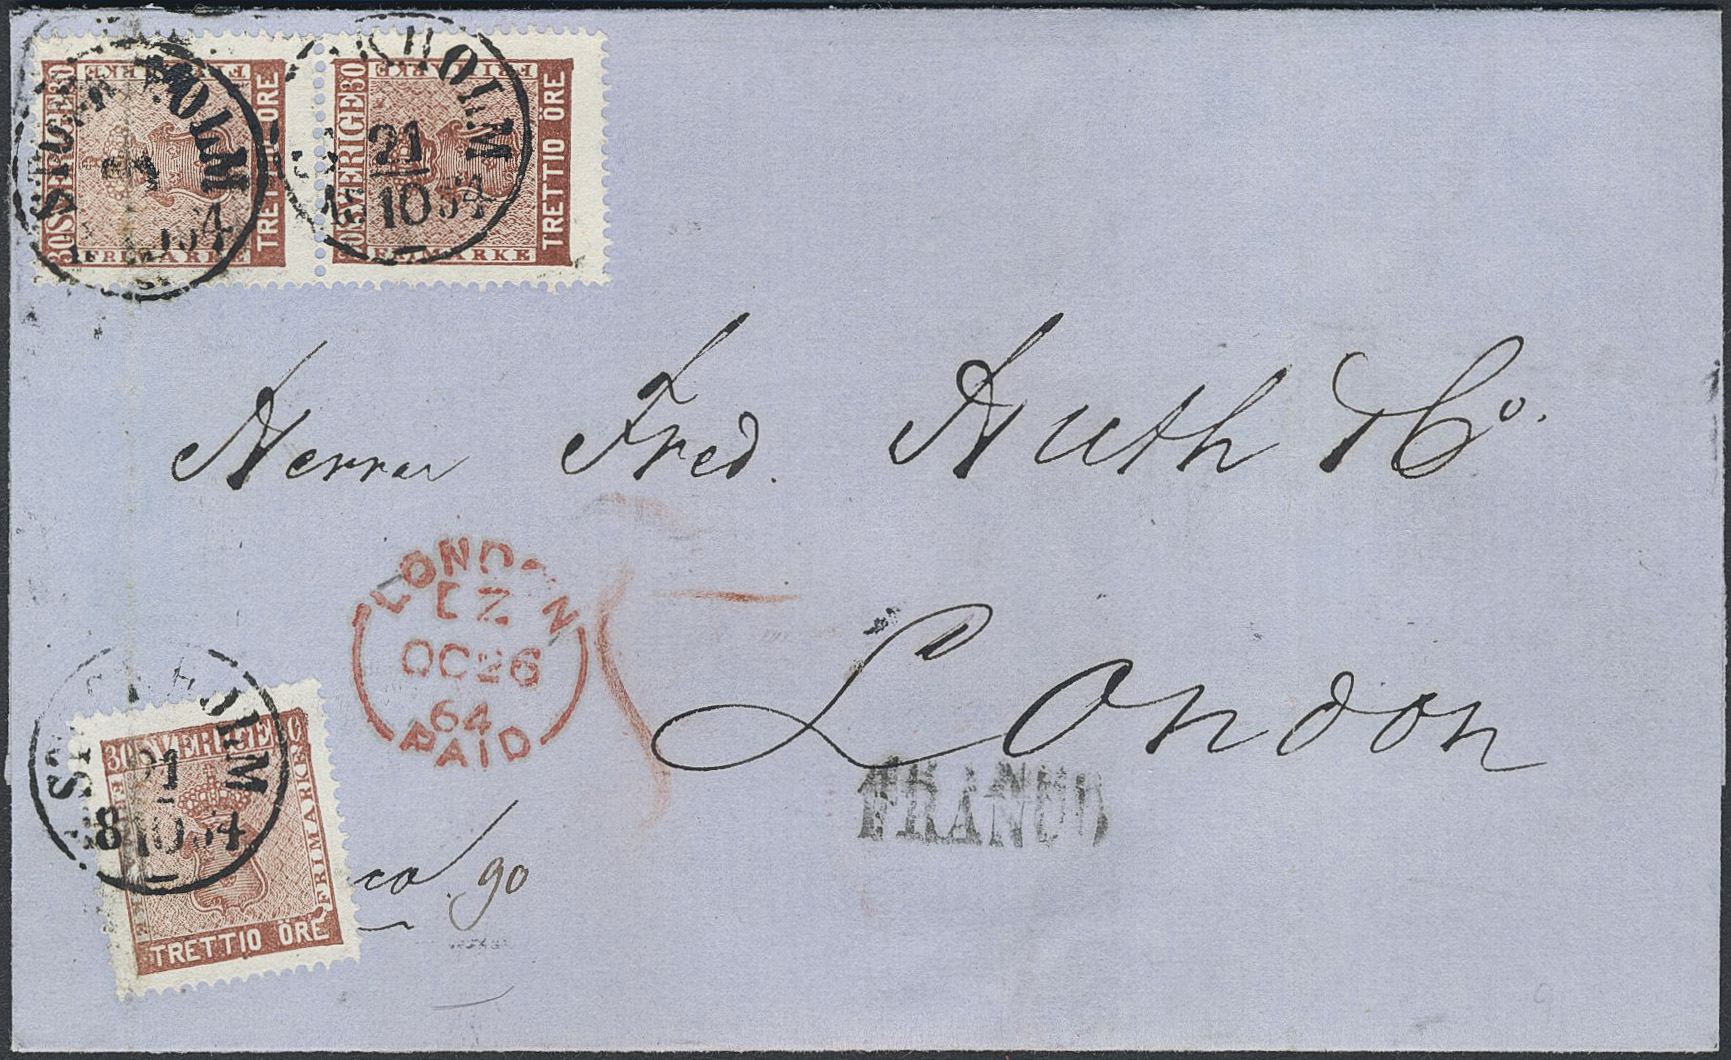 30 SVERIGE 30
FRIMÄRKE
FRIMÄRKE
TRETTIO ÖRE
STOCKHOLM
1864
30 SVERIGE 30
FRIMÄRKE
FRIMÄRKE
TRETTIO ÖRE
STOCKHOLM
21
10 1864
Herrar Fred. Huth & Co.
LONDON
EZ
OC 26
64
PAID
London
FRANCO
STOCKHOLM
21
10 1864
30 SVERIGE 30
FRIMÄRKE
FRIMÄRKE
TRETTIO ÖRE
co 90